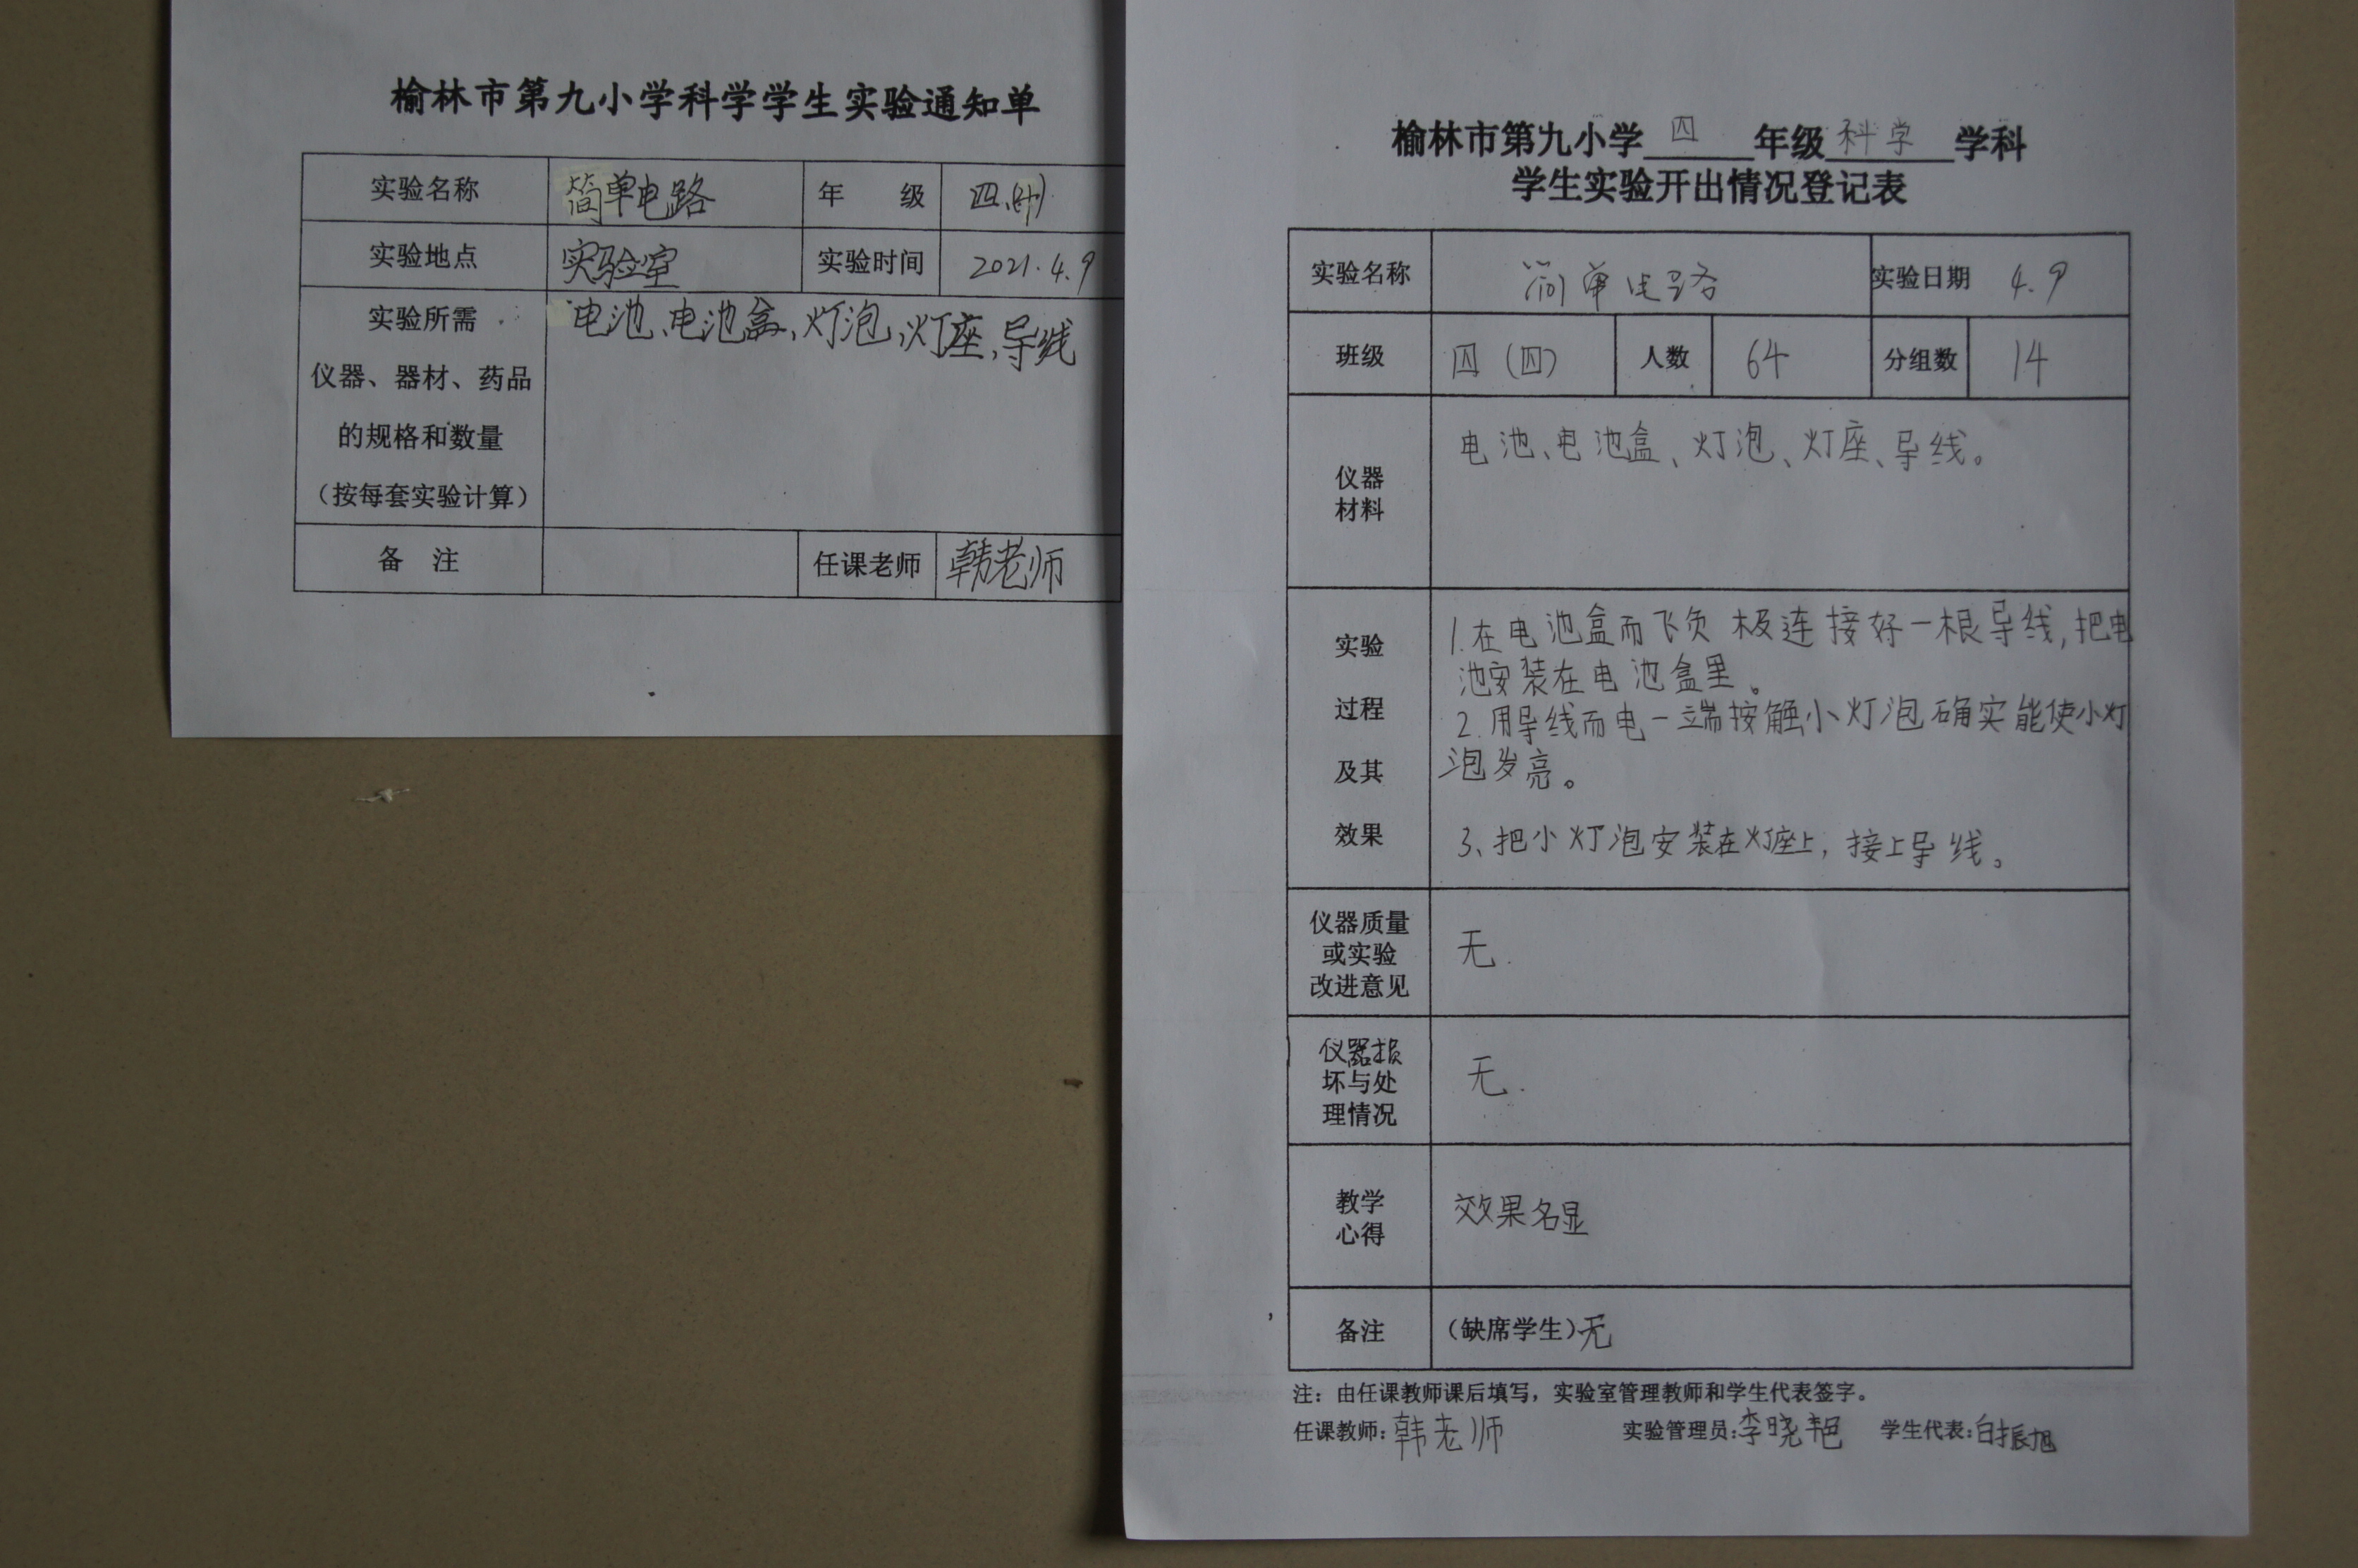 榆林市第九小学科学学生实验通知单
实验名称 简单电路 年 级 四
实验地点 实验室 实验时间 2021.4.9
实验所需 电池、电池盒、灯泡、灯座、导线
仪器、器材、药品
的规格和数量
（按每套实验计算）
备 注 任课老师 韩老师
榆林市第九小学 四 年级 科学 学科
学生实验开出情况登记表
实验名称 简单电路 实验日期 4.9
班级 四（四） 人数 64 分组数 14
仪器
材料
电池、电池盒、灯泡、灯座、导线。
实验
过程
及其
效果
1.在电池盒而飞负极连接好一根导线,把电
池安装在电池盒里。
2.用导线而电一端按触小灯泡确实能使小灯
泡发亮。
3、把小灯泡安装在灯座上，接上导线。
仪器质量
或实验
改进意见
无.
仪器损
坏与处
理情况
无.
教学
心得
效果名显
备注 （缺席学生）无
注：由任课教师课后填写，实验室管理教师和学生代表签字。
任课教师:韩老师 实验管理员:李晓艳 学生代表:白振旭